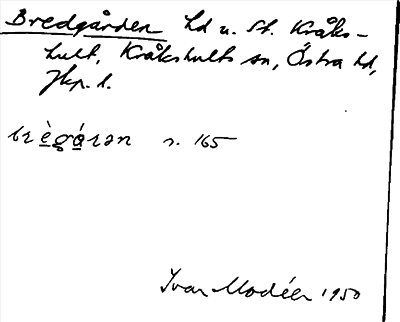 Bredgården hd u. St. Kråks-
hult, Kråkshults sn, Östra hd,
Jkp. l.
brègá̱rən s. 165
Ivar Modéer 1950